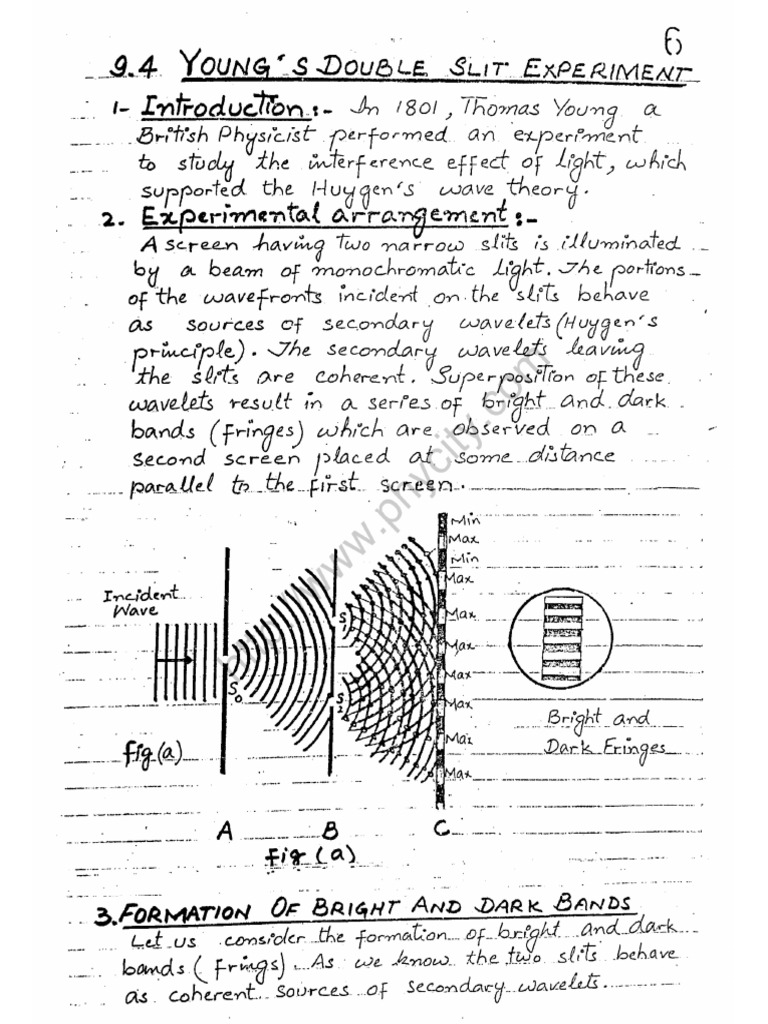 6
9.4 YOUNG'S DOUBLE SLIT EXPERIMENT
1- Introduction:- In 1801, Thomas Young a
British Physicist performed an experiment
to study the interference effect of light, which
supported the Huygen's wave theory.
2. Experimental arrangement:-
A screen having two narrow slits is illuminated
by a beam of monochromatic light. The portions
of the wavefronts incident on the slits behave
as sources of secondary wavelets (Huygen's
principle). The secondary wavelets leaving
the slits are coherent. Superposition of these
wavelets result in a series of bright and dark
bands (fringes) which are observed on a
second screen placed at some distance
parallel to the first screen.
Min
Max
Min
Max
Incident
Wave
Max
S1
Max
S0
Max
S2
Max
Max
Max
Bright and
Dark Fringes
fig(a)
A B C
fig (a)
3. FORMATION OF BRIGHT AND DARK BANDS
Let us consider the formation of bright and dark
bands (frings). As we know the two slits behave
as coherent sources of secondary wavelets.
www.phycity.com